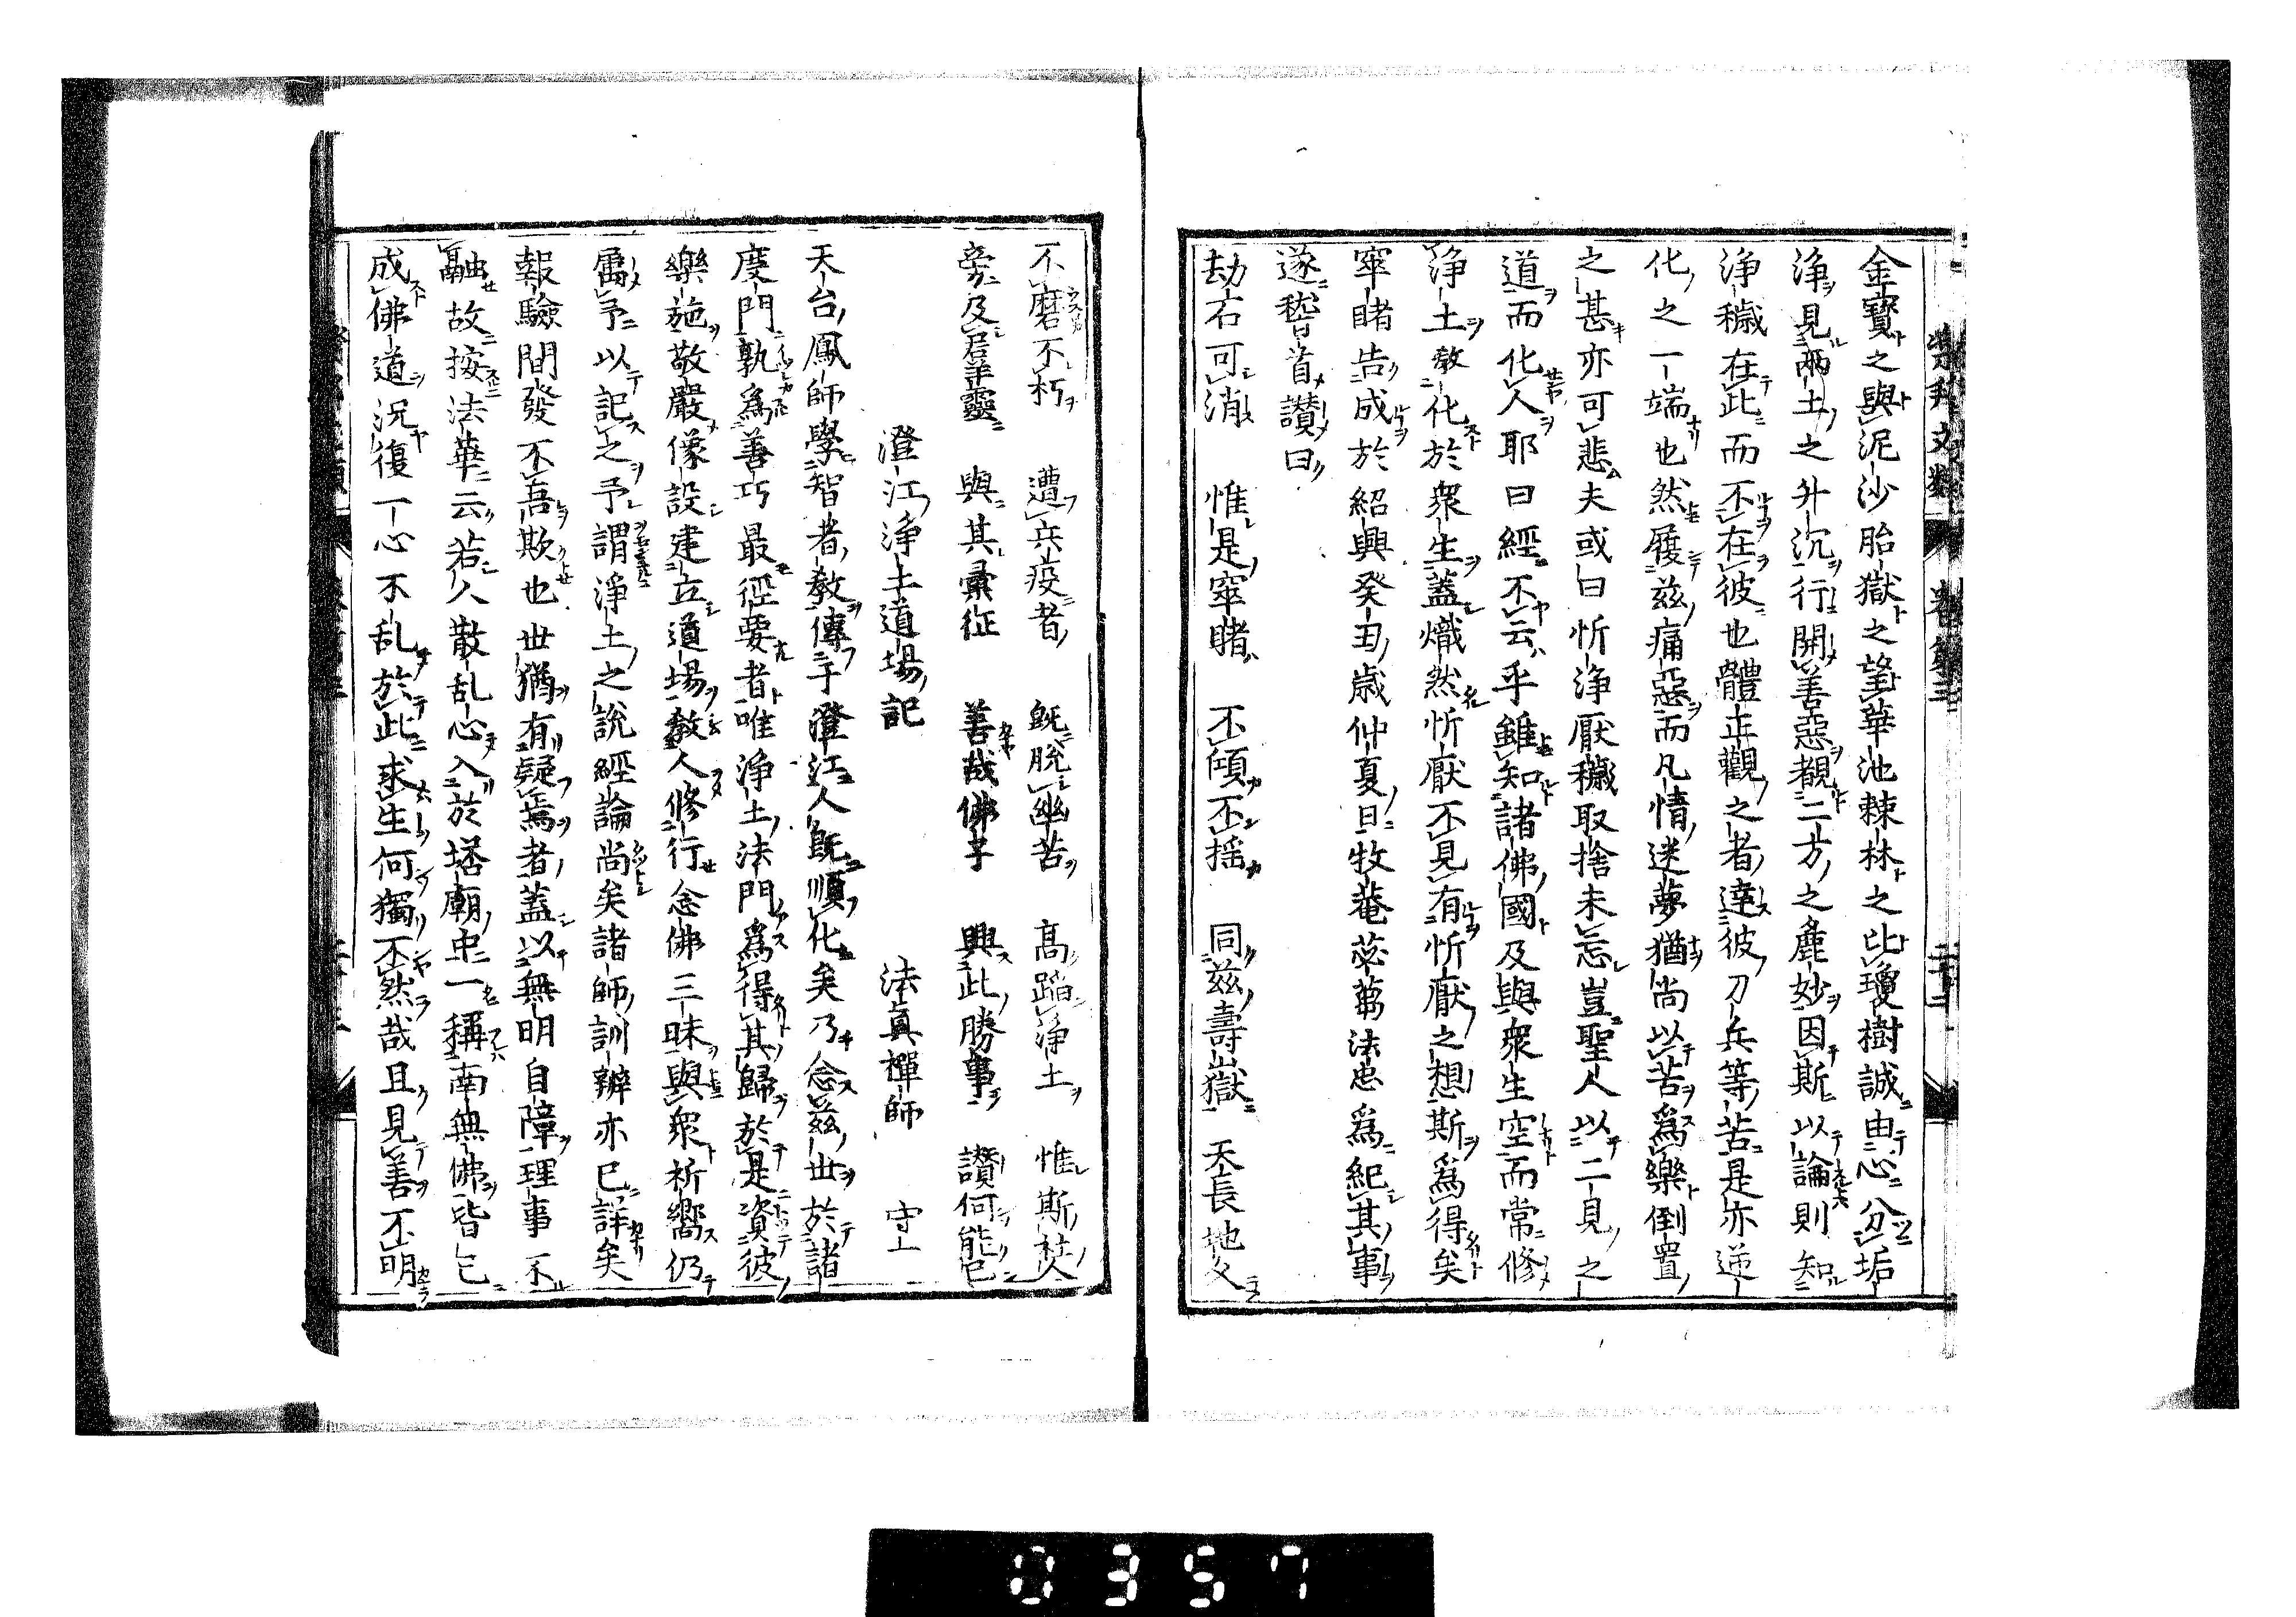 金寶之與泥沙胎獄之望華池棘林之比瓊樹誠由心分垢
淨見兩土之升沉行開善惡覩二方之麤妙因斯以論則知
淨穢在此而不在彼也體正觀之者達彼刀兵等苦是亦逆
化之一端也然履茲痛惡而凡情迷夢猶尚以苦爲樂倒置
之甚亦可悲夫或曰忻淨厭穢取捨未忘豈聖人以二見之
道而化人耶曰經不云乎雖知諸佛國及與衆生空而常修
淨土教化於衆生蓋熾然忻厭不見有忻厭之想斯爲得矣
窣睹告成於紹興癸丑歳仲夏旦牧菴苾蒭法忠爲紀其事
遂稽首讃曰
劫石可消 惟是窣睹 不傾不揺 同茲壽嶽 天長地久
不磨不朽 遭兵疫者 既脫幽苦 高蹈淨土 惟斯社人
旁及羣靈 與其彙征 善哉佛子 興此勝事 讃何能已
澄江淨土道場記 法真禪師 守一
天台鳳師學智者教傳于澄江人既順化矣乃念茲世於諸
度門孰爲善巧最徑要者唯淨土法門爲得其歸於是資彼
樂施敬嚴像設建立道場教人修行念佛三昧與衆祈嚮仍
屬予以記之予謂淨土之說經論尚矣諸師訓辨亦已詳矣
報驗間發不吾欺也世猶有疑焉者蓋以無明自障理事不
融故按法華云若人散乱心入於塔廟中一稱南無佛皆已
成佛道況復一心不乱於此求生何獨不然哉且見善不明
0357